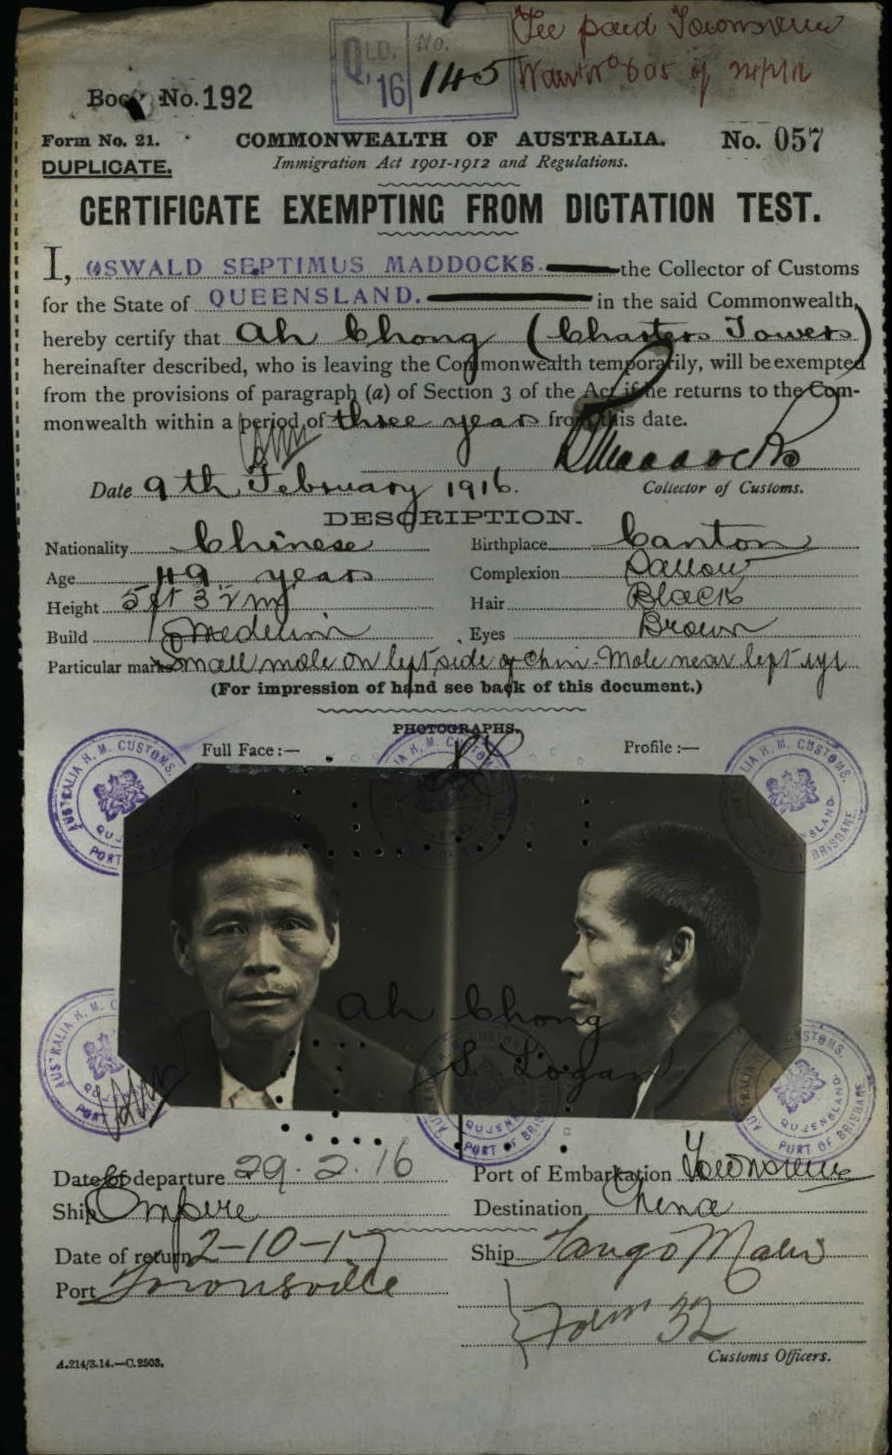 Fee paid Townsville
QLD. No.
16 145
Book No. 192
Form No. 21. COMMONWEALTH OF AUSTRALIA. No. 057
DUPLICATE. Immigration Act 1901-1912 and Regulations.
CERTIFICATE EXEMPTING FROM DICTATION TEST.
I, OSWALD SEPTIMUS MADDOCKS. the Collector of Customs
for the State of QUEENSLAND. in the said Commonwealth,
hereby certify that Ah Chong (Charters Towers)
hereinafter described, who is leaving the Commonwealth temporarily, will be exempted
from the provisions of paragraph (a) of Section 3 of the Act if he returns to the Com-
monwealth within a period of three years from this date.
Maddocks
Date 9th February 1916. Collector of Customs.
DESCRIPTION.
Nationality Chinese Birthplace Canton
Age 49 years Complexion Sallow
Height 5 ft 3 1/2 in Hair Black
Build Medium Eyes Brown
Particular marks Small mole on left side of chin - Mole near left eye
(For impression of hand see back of this document.)
PHOTOGRAPHS.
Full Face :— Profile :—
AUSTRALIA H. M. CUSTOMS. QUEENSLAND PORT OF BRISBANE
Ah Chong
S. Logan
Date of departure 29.2.16 Port of Embarkation Townsville
Ship Empire Destination China
Date of return 2-10-17 Ship Tango Maru
Port Townsville
Form 32
A.214/3.14.—C.2503. Customs Officers.